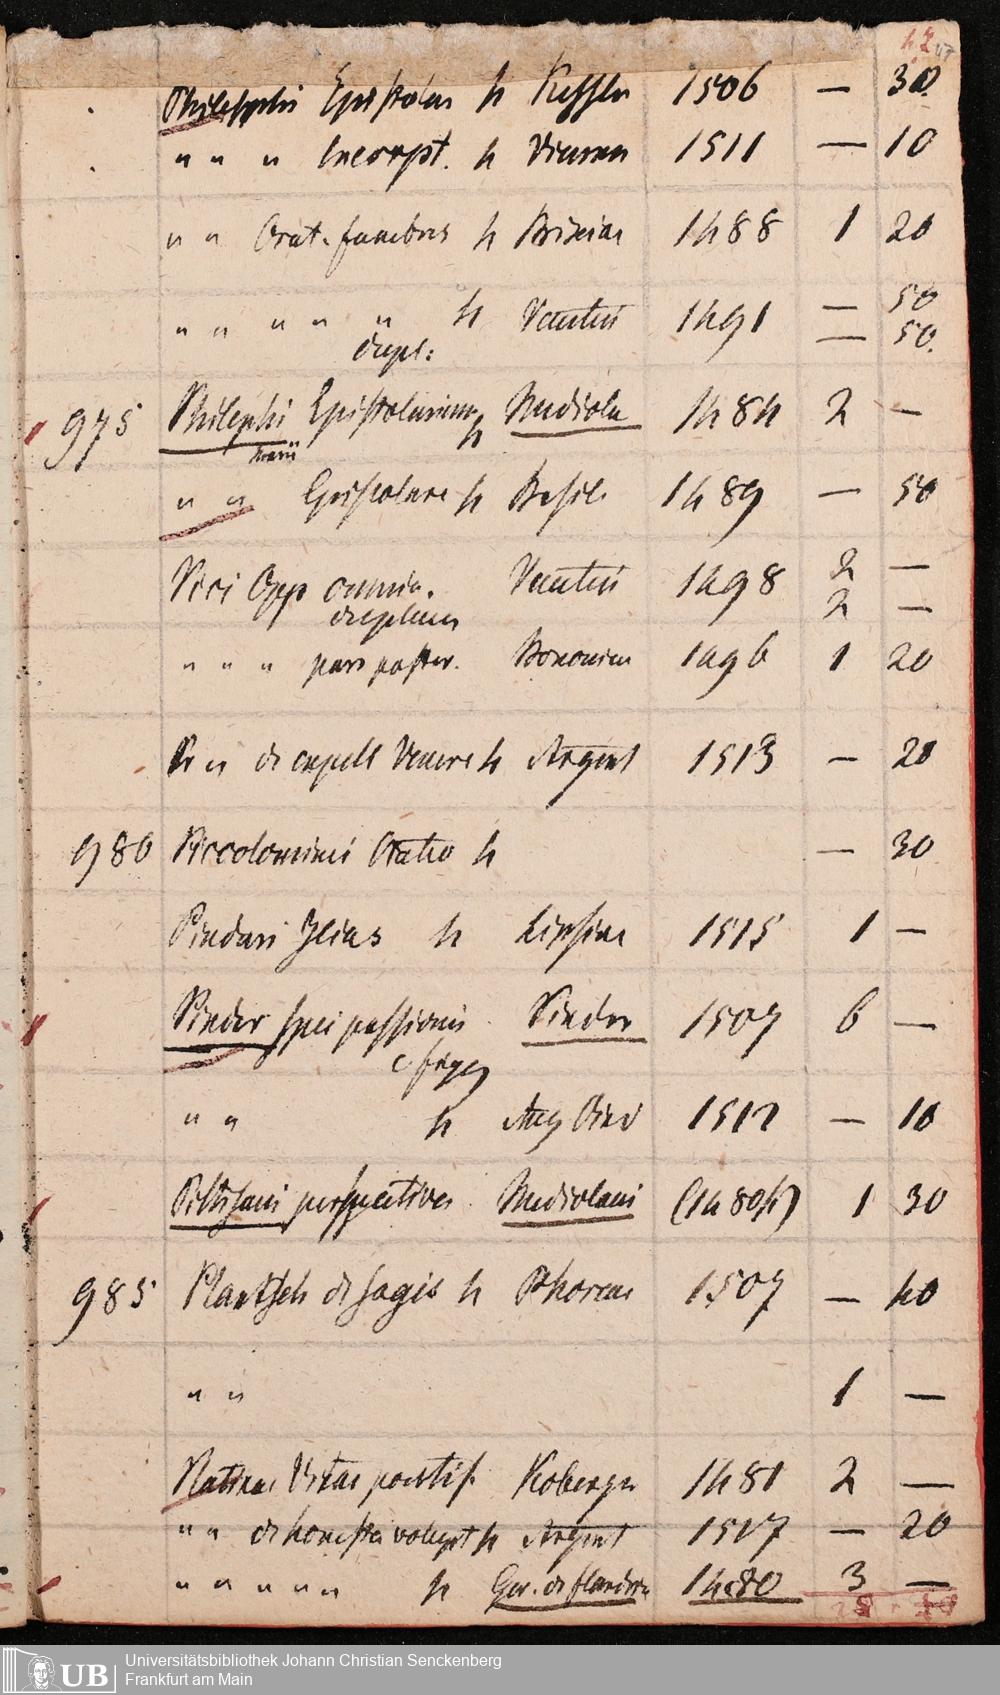 47
Philelphi Epistolae 4 Kessler 1506 — 30.
" " " Excerpt. 4 Viennen 1511 — 10
" " Orat. funebres 4 Brixiae 1488 1 20
" " " " " 4 Venetiis 1491 — 50
dupl: — 50.
975 Philelphi Epistolarium 4 Mediola 1484 2 —
Marii
" " Epistolare 4 Basil. 1489 — 50
Pici Opp omnia. Venetiis 1498 2 —
duplum 2 —
" " " pars poster. Bononiae 1496 1 20
P " de expell Venere 4 Argent 1513 — 20
980 Piccolominei Oratio 4 — 30
Pindari Ilias 4 Lipsiae 1515 1 —
Pinder spec passionis Pinder 1507 6 —
c figg
" " 4 Aug Bind 1512 — 10
Pithsani perspectiva Mediolani (1480/4) 1 30
985 Plantsch de sagis 4 Phorcae 1507 — 40
" " 1 —
Platinae Vitae pontif. Koberger 1481 2 —
" " de honesta volupt 4 Argent 1517 — 20
" " " " " 4 Ger. de flandria 1480 3 —
UB Universitätsbibliothek Johann Christian Senckenberg
Frankfurt am Main